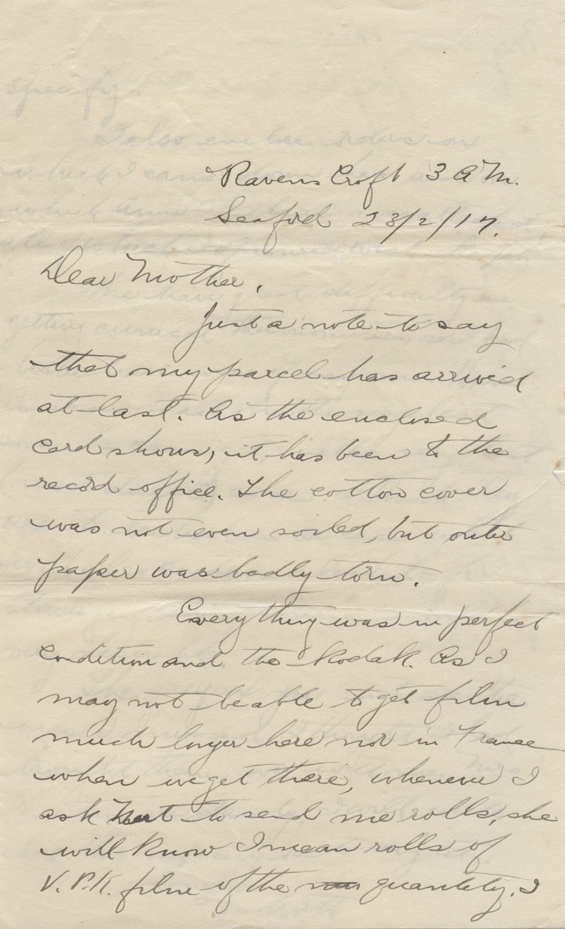 Ravens Croft 3 A.M.
Seaford 23/2/17.
Dear Mother,
Just a note to say
that my parcel has arrived
at last. As the enclosed
card shows, it has been to the
record office. The cotton cover
was not even soiled, but outer
paper was badly torn.
Everything was in perfect
condition and the Kodak. As I
may not be able to get film
much longer here nor in France
when we get there, whenever I
ask to send me rolls, she
will know I mean rolls of
V.P.K. film of the quantity. I